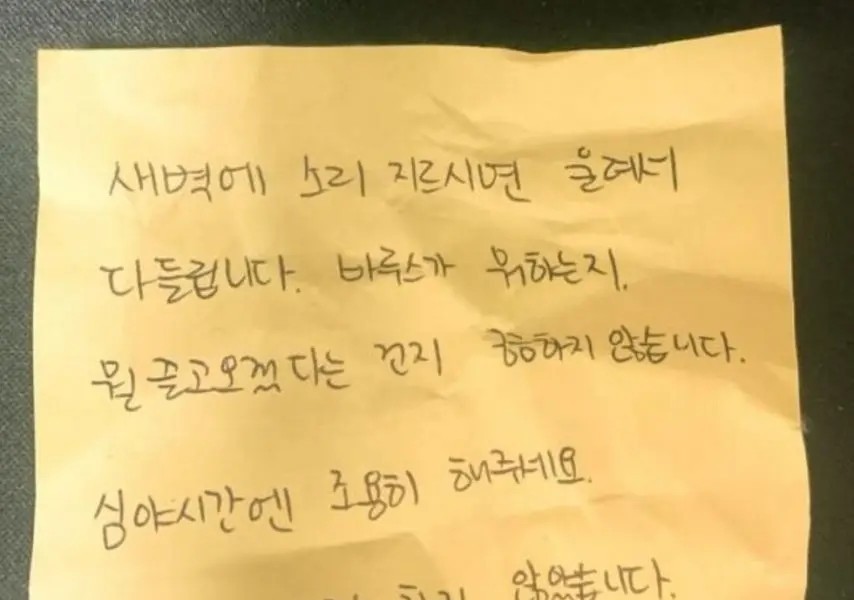 새벽에 소리 지르시면 옆에서
다들립니다. 바루스가 뭐하는지.
뭘 끌고오겠다는 건지 궁금하지 않습니다.
심야시간엔 조용히 해주세요.
하지 않았습니다.